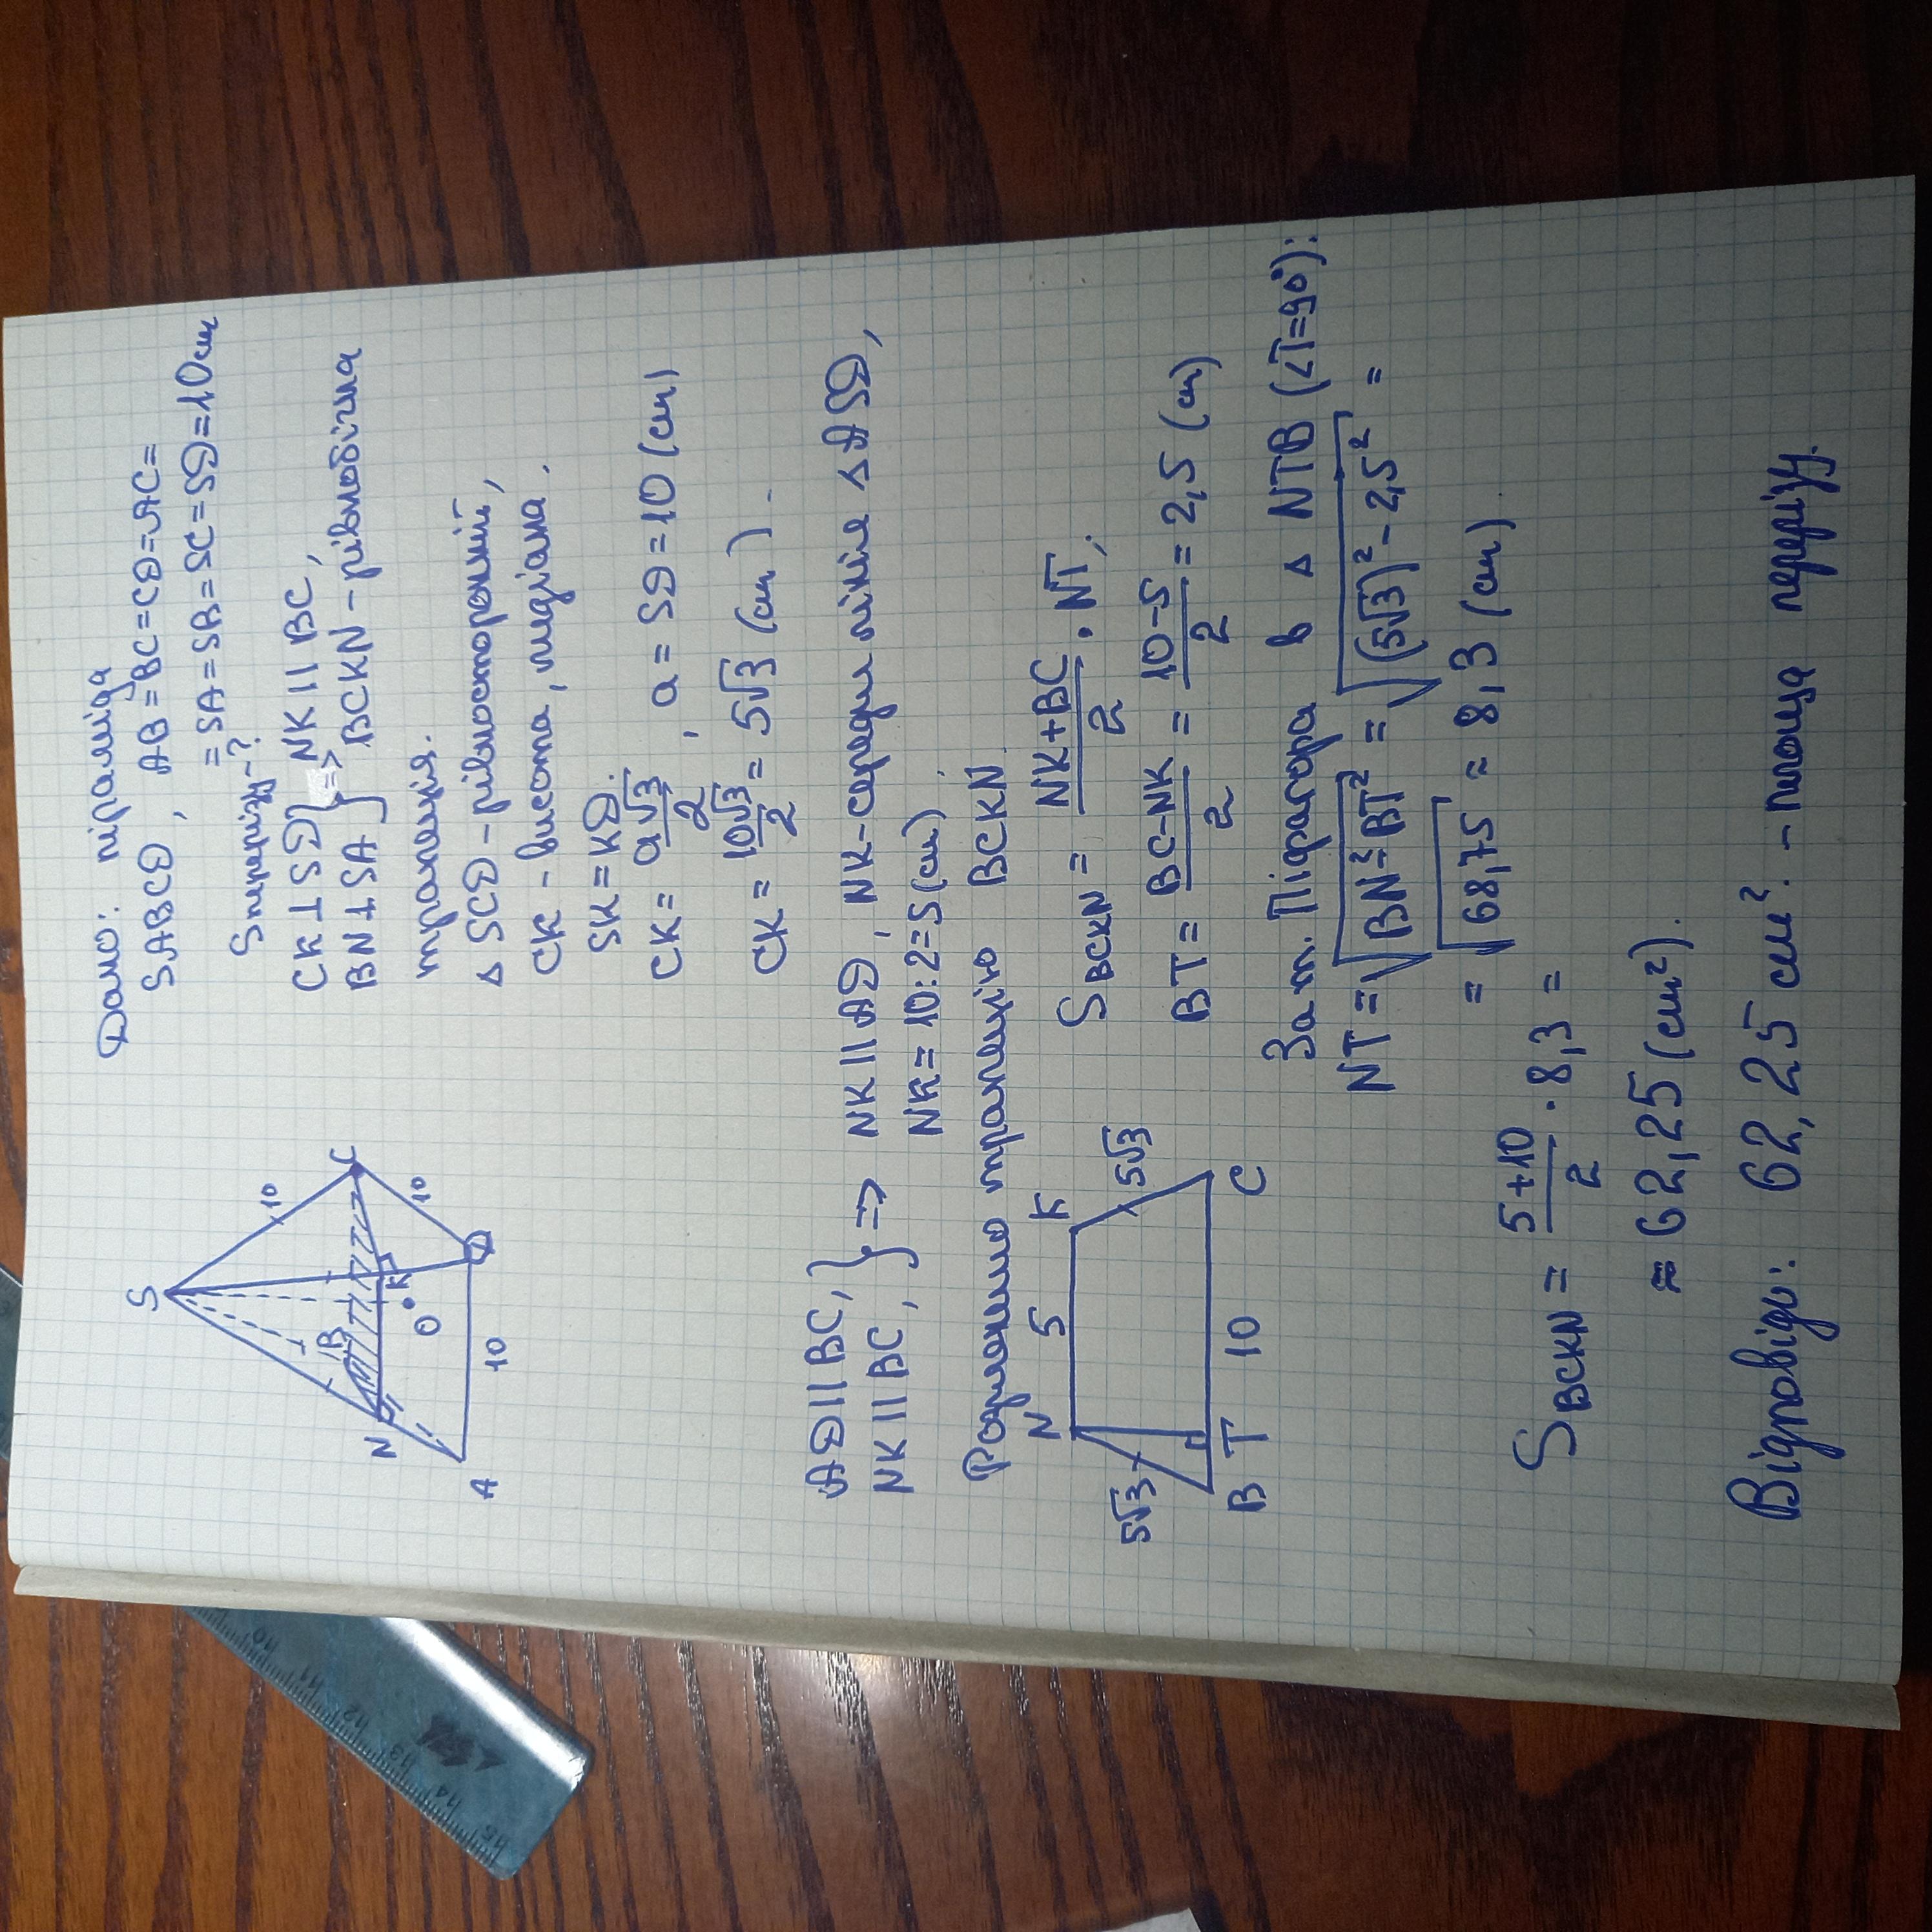 Дано: піраміда
SABCD, AB=BC=CD=AC=
=SA=SB=SC=SD=10см
Sперерізу-?
CK⊥SD } => NK||BC,
BN⊥SA } BCKN-рівнобічна
трапеція.
△SCD-рівносторонній,
CK-висота, медіана.
SK=KD.
CK = a√3/2, a=SD=10(см)
CK = 10√3/2 = 5√3 (см).
S
10
C
10
D
K
O
B
N
A
10
AD||BC, } => NK||AD, NK-середн лінія △ASD,
NK||BC, } NK=10:2=5(см).
Розглянемо трапецію BCKN.
N 5 K
5√3
5√3
B T 10 C
S BCKN = (NK+BC)/2 · NT;
BT = (BC-NK)/2 = (10-5)/2 = 2,5 (см)
За т. Піфагора в △ NTB (∠T=90°):
NT = √(BN²-BT²) = √((5√3)²-2,5²) =
= √68,75 ≈ 8,3 (см)
S BCKN = (5+10)/2 · 8,3 =
≈ 62,25 (см²).
Відповідь: 62,25 см².-площа перерізу.
10 11 12 13 14 15